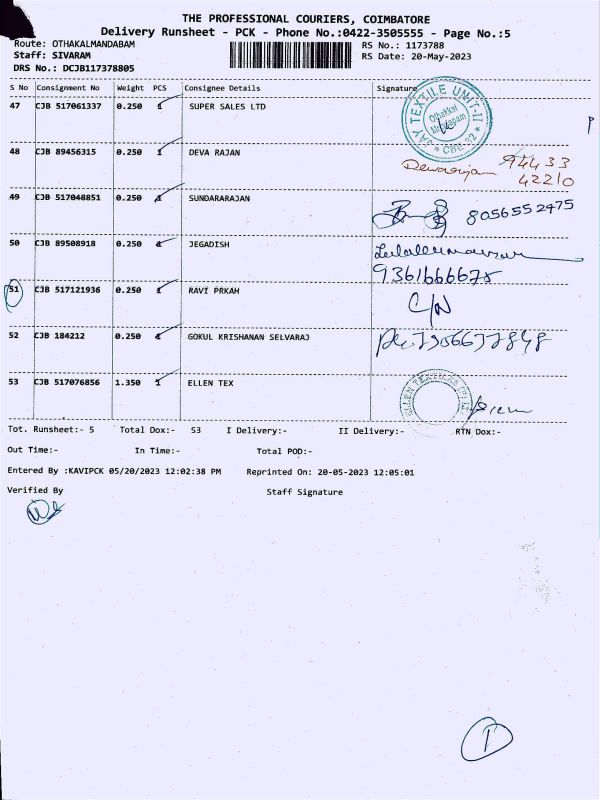 THE PROFESSIONAL COURIERS, COIMBATORE
Delivery Runsheet - PCK - Phone No.:0422-3505555 - Page No.:5
Route: OTHAKALMANDABAM
RS No.: 1173788
Staff: SIVARAM
RS Date: 20-May-2023
DRS No.: DCJB117378805
S No Consignment No Weight PCS Consignee Details Signature
47 CJB 517061337 0.250 1 SUPER SALES LTD
TEXTILE UNIT-II
Othakkal
48 CJB 89456315 0.250 1 DEVA RAJAN
Devarajan 94433
42210
49 CJB 517048851 0.250 1 SUNDARARAJAN
8056552475
50 CJB 89508918 0.250 1 JEGADISH
51 CJB 517121936 0.250 1 RAVI PRKAH
C/N
52 CJB 184212 0.250 1 GOKUL KRISHANAN SELVARAJ
53 CJB 517076856 1.350 1 ELLEN TEX
Tot. Runsheet:- 5 Total Dox:- 53 I Delivery:- II Delivery:- RTN Dox:-
Out Time:- In Time:- Total POD:-
Entered By :KAVIPCK 05/20/2023 12:02:38 PM Reprinted On: 20-05-2023 12:05:01
Verified By Staff Signature